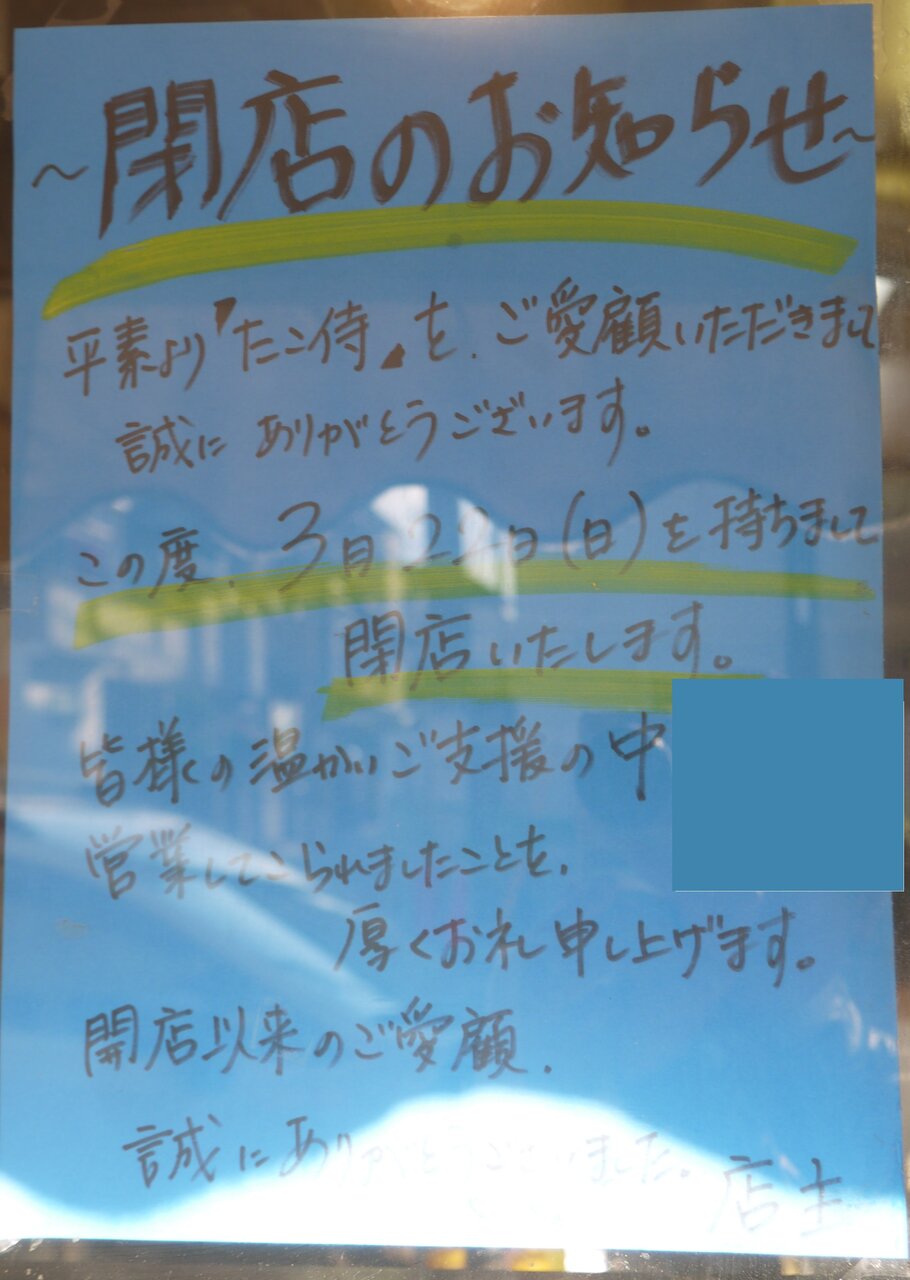 ～閉店のお知らせ～
平素より『たこ侍』を、ご愛顧いただきまして
誠にありがとうございます。
この度、3月22日(日)を持ちまして
閉店いたします。
皆様の温かいご支援の中
営業してこられましたことを、
厚くお礼申し上げます。
開店以来のご愛顧、
誠にありがとうございました。
店主